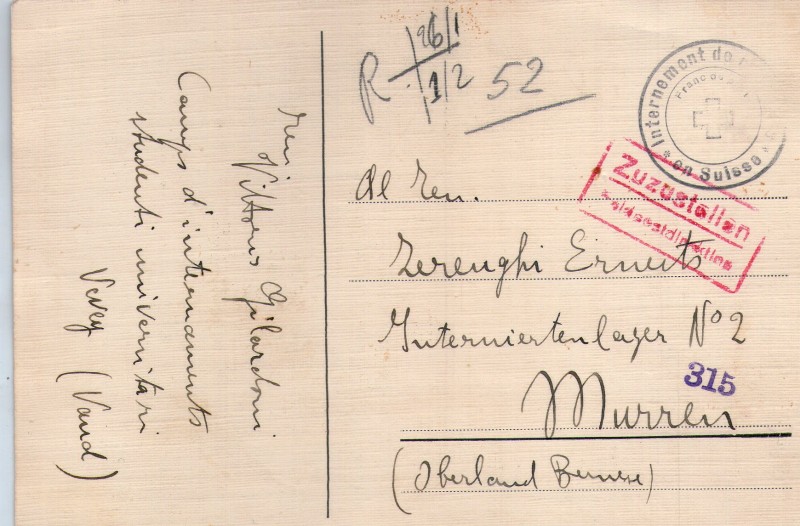 Ten.
Vittorio Gilardoni
Campo d'internamento
studenti universitari
Vevey (Vaud)
R 26/1
1/2 52
Internement de
Franc de
* en Suisse *
Zuzustellen
Feldpostdirektion
Al Ten.
Zerenghi Ernesto
Interniertenlager No 2
315
Murren
(Oberland Bernese)